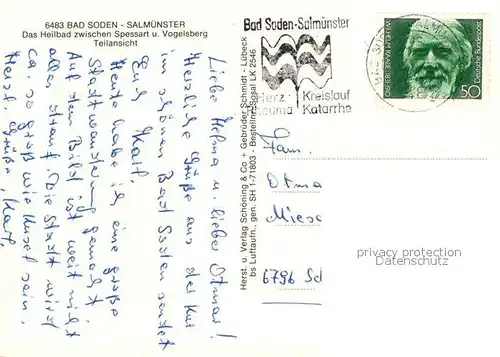 6483 BAD SODEN - SALMÜNSTER
Das Heilbad zwischen Spessart u. Vogelsberg
Teilansicht
Liebe Helma u. lieber Otmar!
Herzliche Grüße aus der Kur
im schönen Bad Soden sendet
Euch Karl.
Heute habe ich eine große
Stadtwanderung gemacht
Auf dem Bild ist weit nicht
alles drauf. Die Stadt wird
ca. so groß wie Kusel sein.
Herzl. Grüße, Karl.
Herst. u. Verlag Schöning & Co + Gebrüder Schmidt - Lübeck
bs Luftaufn., gen. SH 1-71803 - Bestellnr. Sosal LK 2546
Bad Soden-Salmünster
Herz - Kreislauf
Rheuma Katarrhe
WILHELM RAABE 1831-1910
Deutsche Bundespost
50
Fam.
Otma
Miese
6796 Sch
privacy protection
Datenschutz